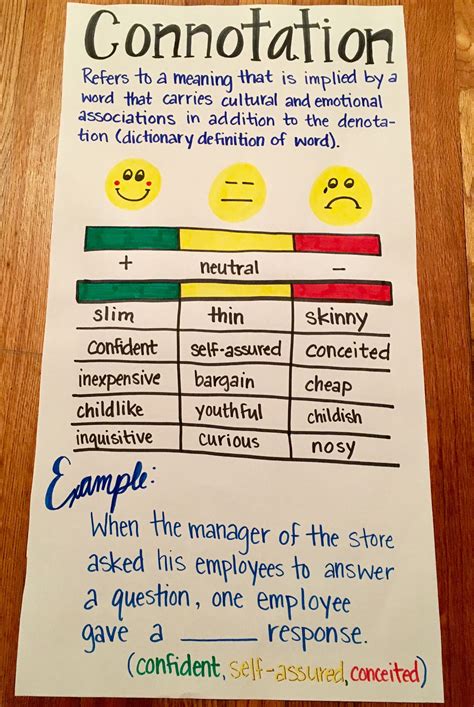 Connotation
Refers to a meaning that is implied by a
word that carries cultural and emotional
associations in addition to the denota-
tion (dictionary definition of word).
+ neutral -
slim thin skinny
confident self-assured conceited
inexpensive bargain cheap
childlike youthful childish
inquisitive curious nosy
Example:
When the manager of the store
asked his employees to answer
a question, one employee
gave a ______ response.
(confident, self-assured, conceited)